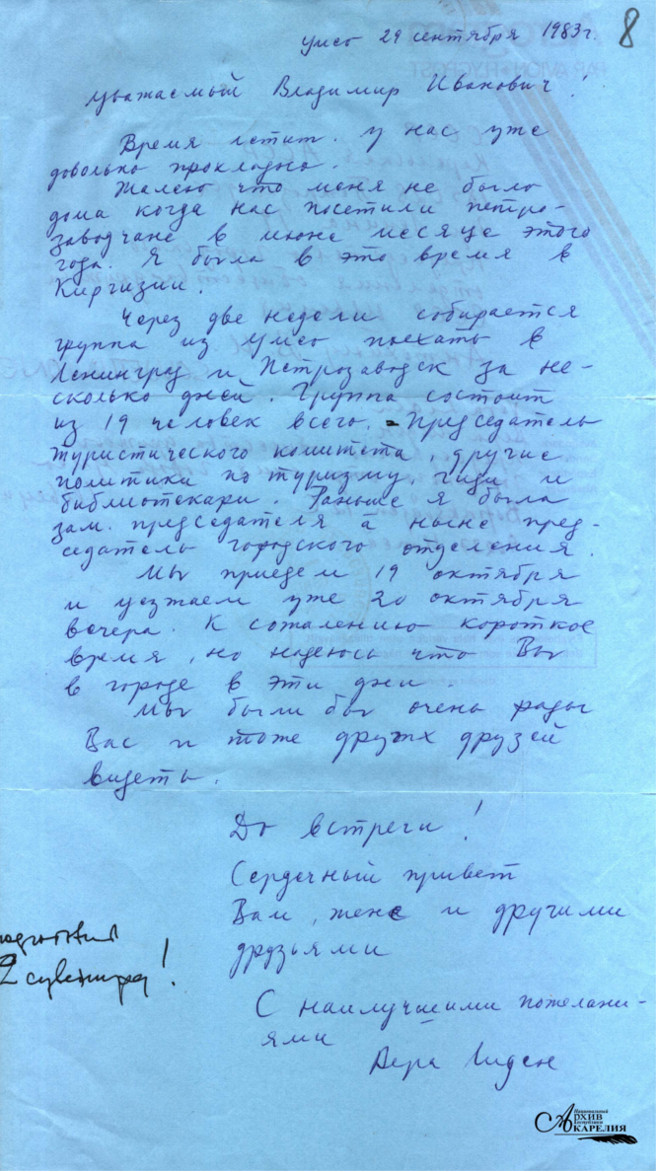 Умео 29 сентября 1983г.
8
уважаемый Владимир Иванович!
Время летит. у нас уже
довольно прохладно.
Жалею что меня не было
дома когда нас посетили петро-
заводчане в июне месяце этого
года. Я была в это время в
Киргизии.
Через две недели собирается
группа из Умео поехать в
Ленинград и Петрозаводск за не-
сколько дней. Группа состоит
из 19 человек всего. - Председатель
туристического комитета, другие
политики по туризму, гиди и
библиотекари. Раньше я была
зам. председателя а ныне пред-
седатель городского отделения.
Мы приедем 19 октября
и уезжаем уже 20 октября
вечера. К сожалению короткое
время, но надеюсь что Вы
в городе в эти дни.
Мы были бы очень рады
Вас и тоже других друзей
видеть.
До встречи!
Сердечный привет
Вам, жене и другими
друзьями
2 сувенира!
С наилучшими пожелани-
ями
Вера Лиден
Национальный
АРХИВ
Республики
КАРЕЛИЯ